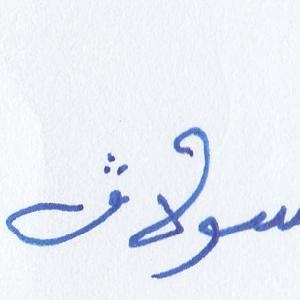 سولاڤ